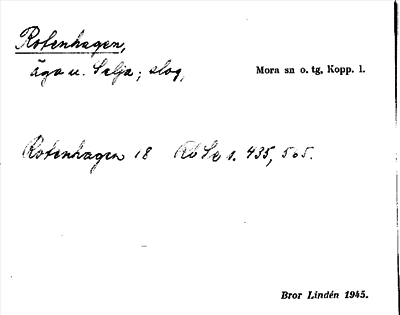 Rotenhagen,
äga u. Selja; skog,
Mora sn o. tg, Kopp. l.
Rotenhagen 18 Rb s. 435, 505.
Bror Lindén 1945.